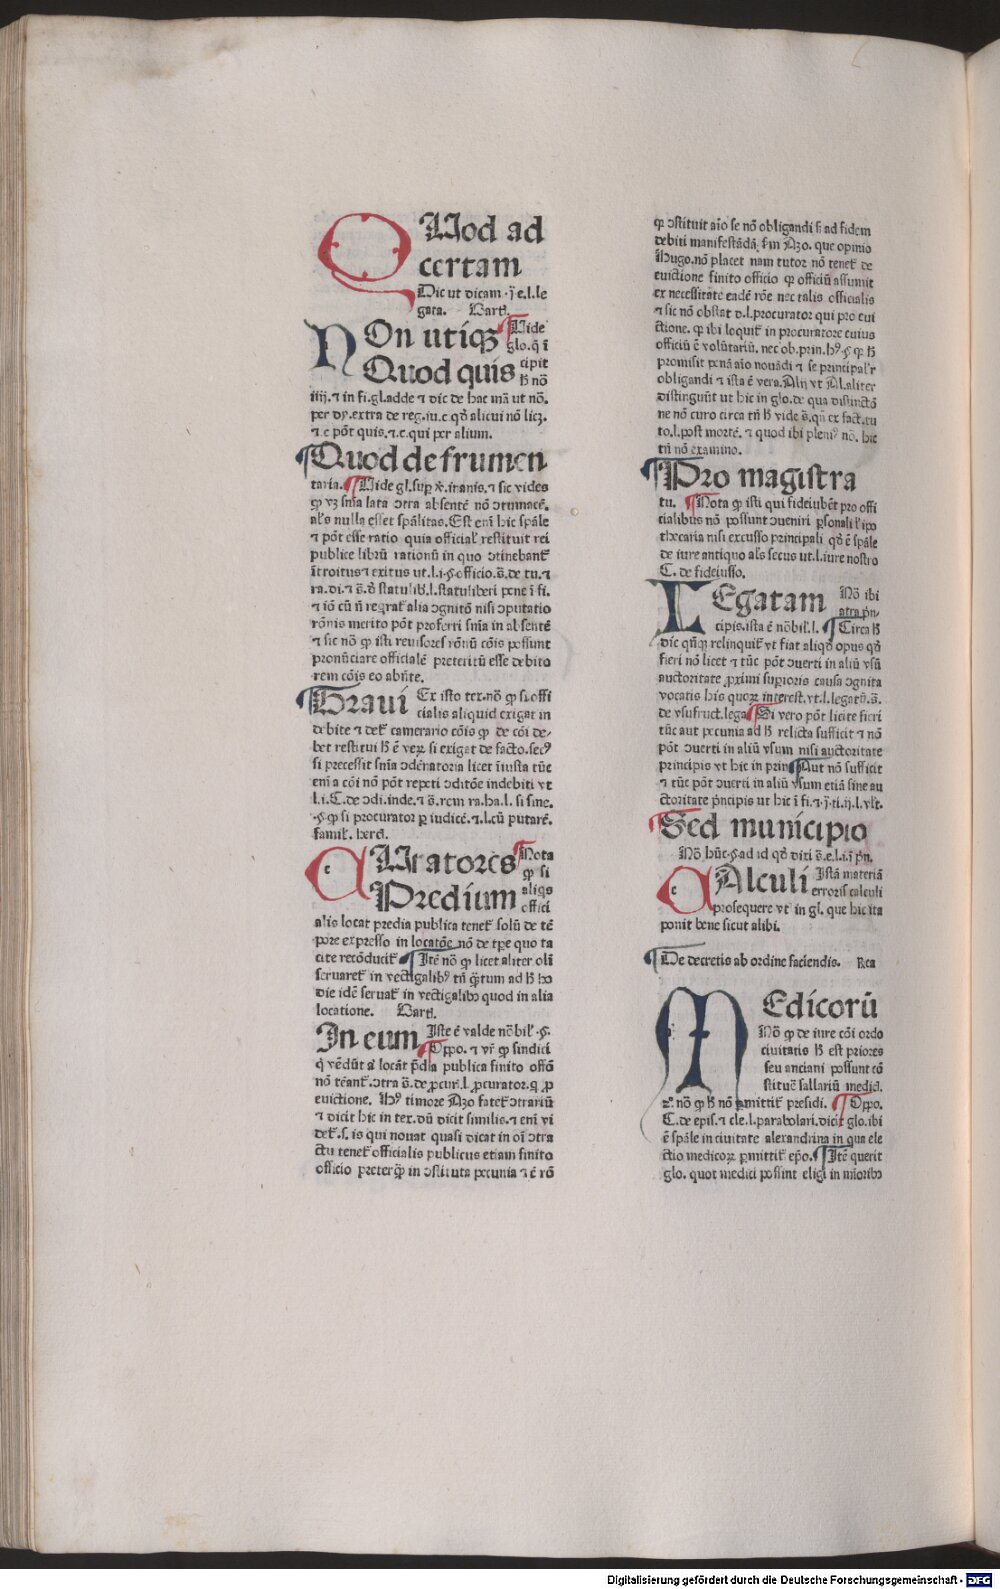 QUod ad
certam
Dic ut dicam. j̄ e.l.le
gata. Bartl.
NOn utiqꝫ ¶Uide
glo.q̄ ī
Quod quis cipit
ℏ nō
iiij. ⁊ in fi. gl. adde ⁊ dic de hac mā ut nō.
per dy. extra de reg. iu. c. qđ alicui nō licꝫ.
⁊ c pōt quis. ⁊ c. qui per alium.
¶Quod de frumen
taria. ¶Uide gl. sup v̄. inanis. ⁊ sic vides
ꝙ vꝫ snīa lata ↄtra absentē nō ↄtumacē.
al's nulla esset spālitas. Est enī hic spāle
⁊ pōt esse ratio quia official' restituit rei
publice librū rationū in quo ↄtinebant̄
introitus ⁊ exitus ut. l. i. §. officio. s̄. de tu. ⁊
ra. di. ⁊ s̄. đ statulib. l. statuliberi pene ī fi.
⁊ iō cū ñ reqrat̄ alia ↄgnitō nisi ↄputatio
rōnis merito pōt proferri snīa in absentē
⁊ sic nō ꝙ isti reuisores rōnū cōis possunt
pronūciare officialē preteritū esse debito
rem cōis eo absn̄te.
¶Graui Ex isto tex. nō ꝙ si offi
cialis aliquid exigat in
debite ⁊ det̄ camerario cōis ꝙ de cōi de-
bet restitui ℏ ē veꝝ si exigat de facto. sec⁹
si precessit snīa ↄdēnatoria licet īiusta tūc
enī a cōi nō pōt repeti ↄditōe indebiti vt
l. i. C. de ↄdi. inde. ⁊ s̄. rem ra. ha. l. si sine.
§. ꝙ si procurator ꝑ iudicē. ⁊ l. cū putarē.
famil'. herc.
CUratores ¶Nota
ꝙ si
Predium aliqs
offici
alis locat predia publica tenet̄ solū de tē
pore expresso in locatōe nō de tꝑe quo ta
cite recōducit̄ ¶Itē nō ꝙ licet aliter olī
seruaret̄ in vectigalib⁹ tñ q̄tum ad ℏ ho
die idē seruat̄ in vectigalibꝫ quod in alia
locatione. Bartl.
In eum Iste ē valde nōbil' §.
¶Oppo. ⁊ vr̄ ꝙ sindici
q̄ vēdūt aꝉ locāt p̄dia publica finito offō
nō tēant̄. ↄtra s̄. de ꝓcur. l. ꝓcurator. q̄ ꝓ
euictione. Hui⁹ timore Azo fatet̄ ↄtrariū
⁊ dicit hic in tex. dū dicit similis. ⁊ enī vi
det̄. s̄. is qui nouat quasi dicat in oī ↄtra
ctu tenet̄ officialis publicus etiam finito
officio preterq̄ in ↄstituta pecunia ⁊ ē rō
ꝙ ↄstituit aīo se nō obligandi s̄ ad fidem
debiti manifestādā s̄m Azo. que opinio
Hugo. nō placet nam tutor nō tenet̄ de
euictione finito officio ꝙ officiū assumit
ex necessitate eadē rōe nec talis officialis
⁊ sic nō obstat d. l. procurator qui pro eui
ctione. ꝙ ibi loquit̄ in procuratore cuius
officiū ē volūtariū. nec ob. prin. h⁹ §. ꝙ ℏ
promisit penā aīo nouādi ⁊ se principal'r
obligandi ⁊ ista ē vera. Alij vt Al. aliter
distinguūt ut hic in glo. de qua distinctō
ne nō curo circa tñ ℏ vide s̄. qn̄ ex fact. tu
to. l. post mortē. ⁊ quod ibi pleni⁹ nō. hic
tñ nō examino.
¶Pro magistra
tu. ¶Nota ꝙ isti qui fideiubēt pro offi
cialibus nō possunt ↄueniri ꝑsonali l' ipo
thecaria nisi excusso principali qđ ē spāle
de iure antiquo al's secus ut. l. iure nostro
C. de fideiusso.
LEgatam Nō ibi
atra p̄n-
cipis. ista ē nōbil'. l. ¶Circa ℏ
dic qn̄qꝫ relinquit̄ vt fiat aliqđ opus qđ
fieri nō licet ⁊ tūc pōt ↄuerti in aliū vsū
auctoritate ꝓximi supioris causa ↄgnita
vocatis his quoꝝ interest. vt. l. legatū. s̄.
de vsufruct. lega ¶Si vero pōt licite fieri
tūc aut pecunia ad ℏ relicta sufficit ⁊ nō
pōt ↄuerti in aliū vsum nisi auctoritate
principis vt hic in prin ¶Aut nō sufficit
⁊ tūc pōt ↄuerti in aliū vsum etiā sine au
ctoritate p̄ncipis ut hic ī fi. ⁊. j̄. ti. ij. l. vlt.
¶Sed municipio
Nō hūc §. ad id qđ dixi s̄. e. l. i. ī pn̄.
CAlculi Istā materiā
erroris calculi
prosequere vt in gl. que hic ita
ponit bene sicut alibi.
¶De decretis ab ordine faciendis. Rca
MEdicorū
Nō ꝙ de iure cōi ordo
ciuitatis ℏ est priores
seu anciani possunt cō
stituē sallariū medicī.
⁊. nō ꝙ ℏ nō ꝑmittit̄ presidi. ¶Oppo.
C. de epis. ⁊ cle. l. parabolari. dicit glo. ibi
ē spāle in ciuitate alexandrina in qua ele
ctio medicoꝝ ꝑmittit̄ epō. ¶Itē querit
glo. quot medici possint eligi in mīoribꝫ
Digitalisierung gefördert durch die Deutsche Forschungsgemeinschaft - DFG